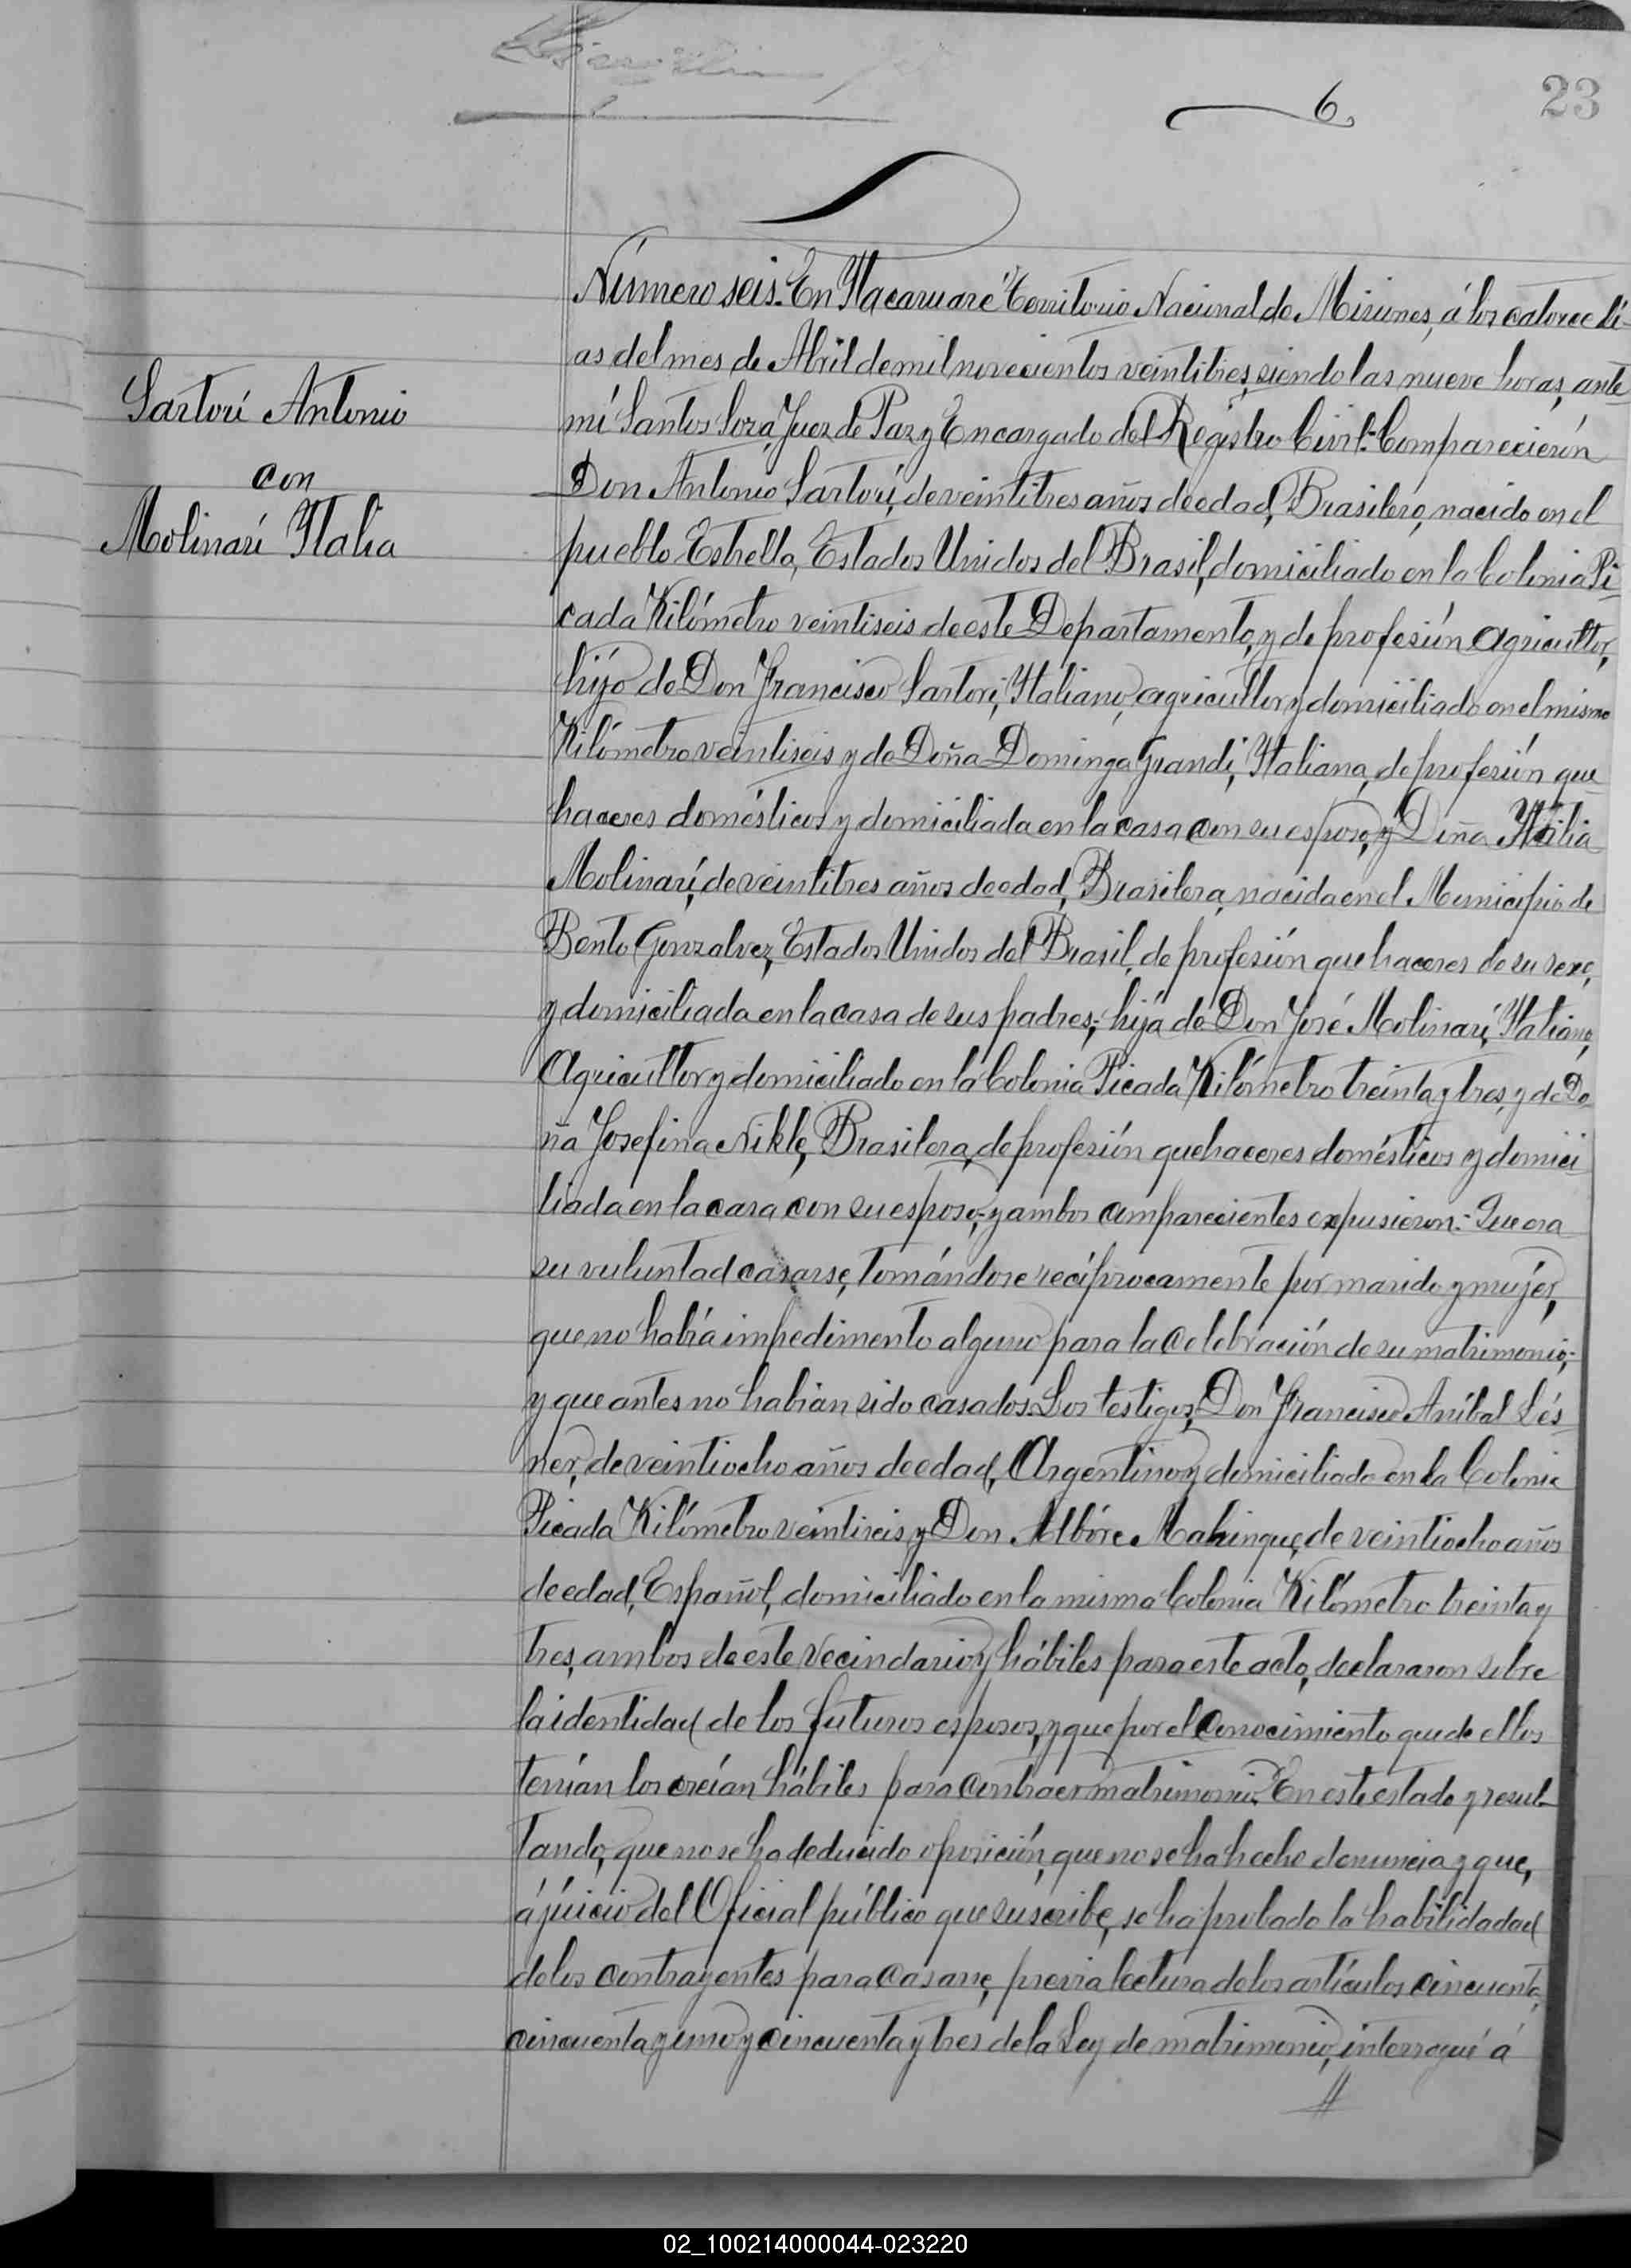 6
23
Sartori Antonio
con
Molinari Ytalia
Número seis. En Ytacaruaré Territorio Nacional de Misiones, á los catorce di-
as del mes de Abril de mil novecientos veintitres, siendo las nueve horas, ante
mí Santos Sosa, Juez de Paz y Encargado del Registro Civil:- Comparecierón
Don Antonio Sartori, de veintitres años de edad, Brasilero, nacido en el
pueblo Estrella, Estados Unidos del Brasil, domiciliado en la Colonia Pi-
cada Kilómetro veintiseis de este Departamento, y de profesión agricultor,
hijo de Don Francisco Sartori, Ytaliano, agricultor y domiciliado en el mismo
Kilómetro veintiseis y de Doña Dominga Grandi, Ytaliana, de profesión que-
haceres domésticos y domiciliada en la casa con su esposo, y Doña Ytalia
Molinari, de veintitres años de edad, Brasilera, nacida en el Municipio de
Bento Gonzalvez, Estados Unidos del Brasil, de profesión quehaceres de su sexo,
y domiciliada en la casa de sus padres; hija de Don José Molinari, Ytaliano,
Agricultor y domiciliado en la Colonia Picada Kilómetro treinta y tres, y de Do-
ña Josefina Nikle, Brasilera, de profesión quehaceres domésticos y domici-
liada en la casa con su esposo; y ambos comparecientes expusieron:- Que era
su voluntad casarse, tomándose recíprocamente por marido y mujer,
que no había impedimento alguno para la celebración de su matrimonio;
y que antes no habían sido casados. Los testigos, Don Francisco Aníbal Lés-
ner, de veintiocho años de edad, Argentino y domiciliado en la Colonia
Picada Kilómetro veintiseis y Don de veintiocho años
de edad, Español, domiciliado en la misma Colonia Kilómetro treinta y
tres, ambos de este vecindario y hábiles para este acto, declararon sobre
la identidad de los futuros esposos, y que por el conocimiento que de ellos
tenían los creían hábiles para contraer matrimonio. En este estado y resul-
tando, que no se ha deducido oposición, que no se ha hecho denuncia y que,
á júicio del Oficial público que suscribe, se ha probado la habilidadad
de los contrayentes para casarse, previa lectura de los artículos cincuenta,
cincuenta y uno y cincuenta y tres de la Ley de matrimonio, interrogué á
//
02_100214000044-023220